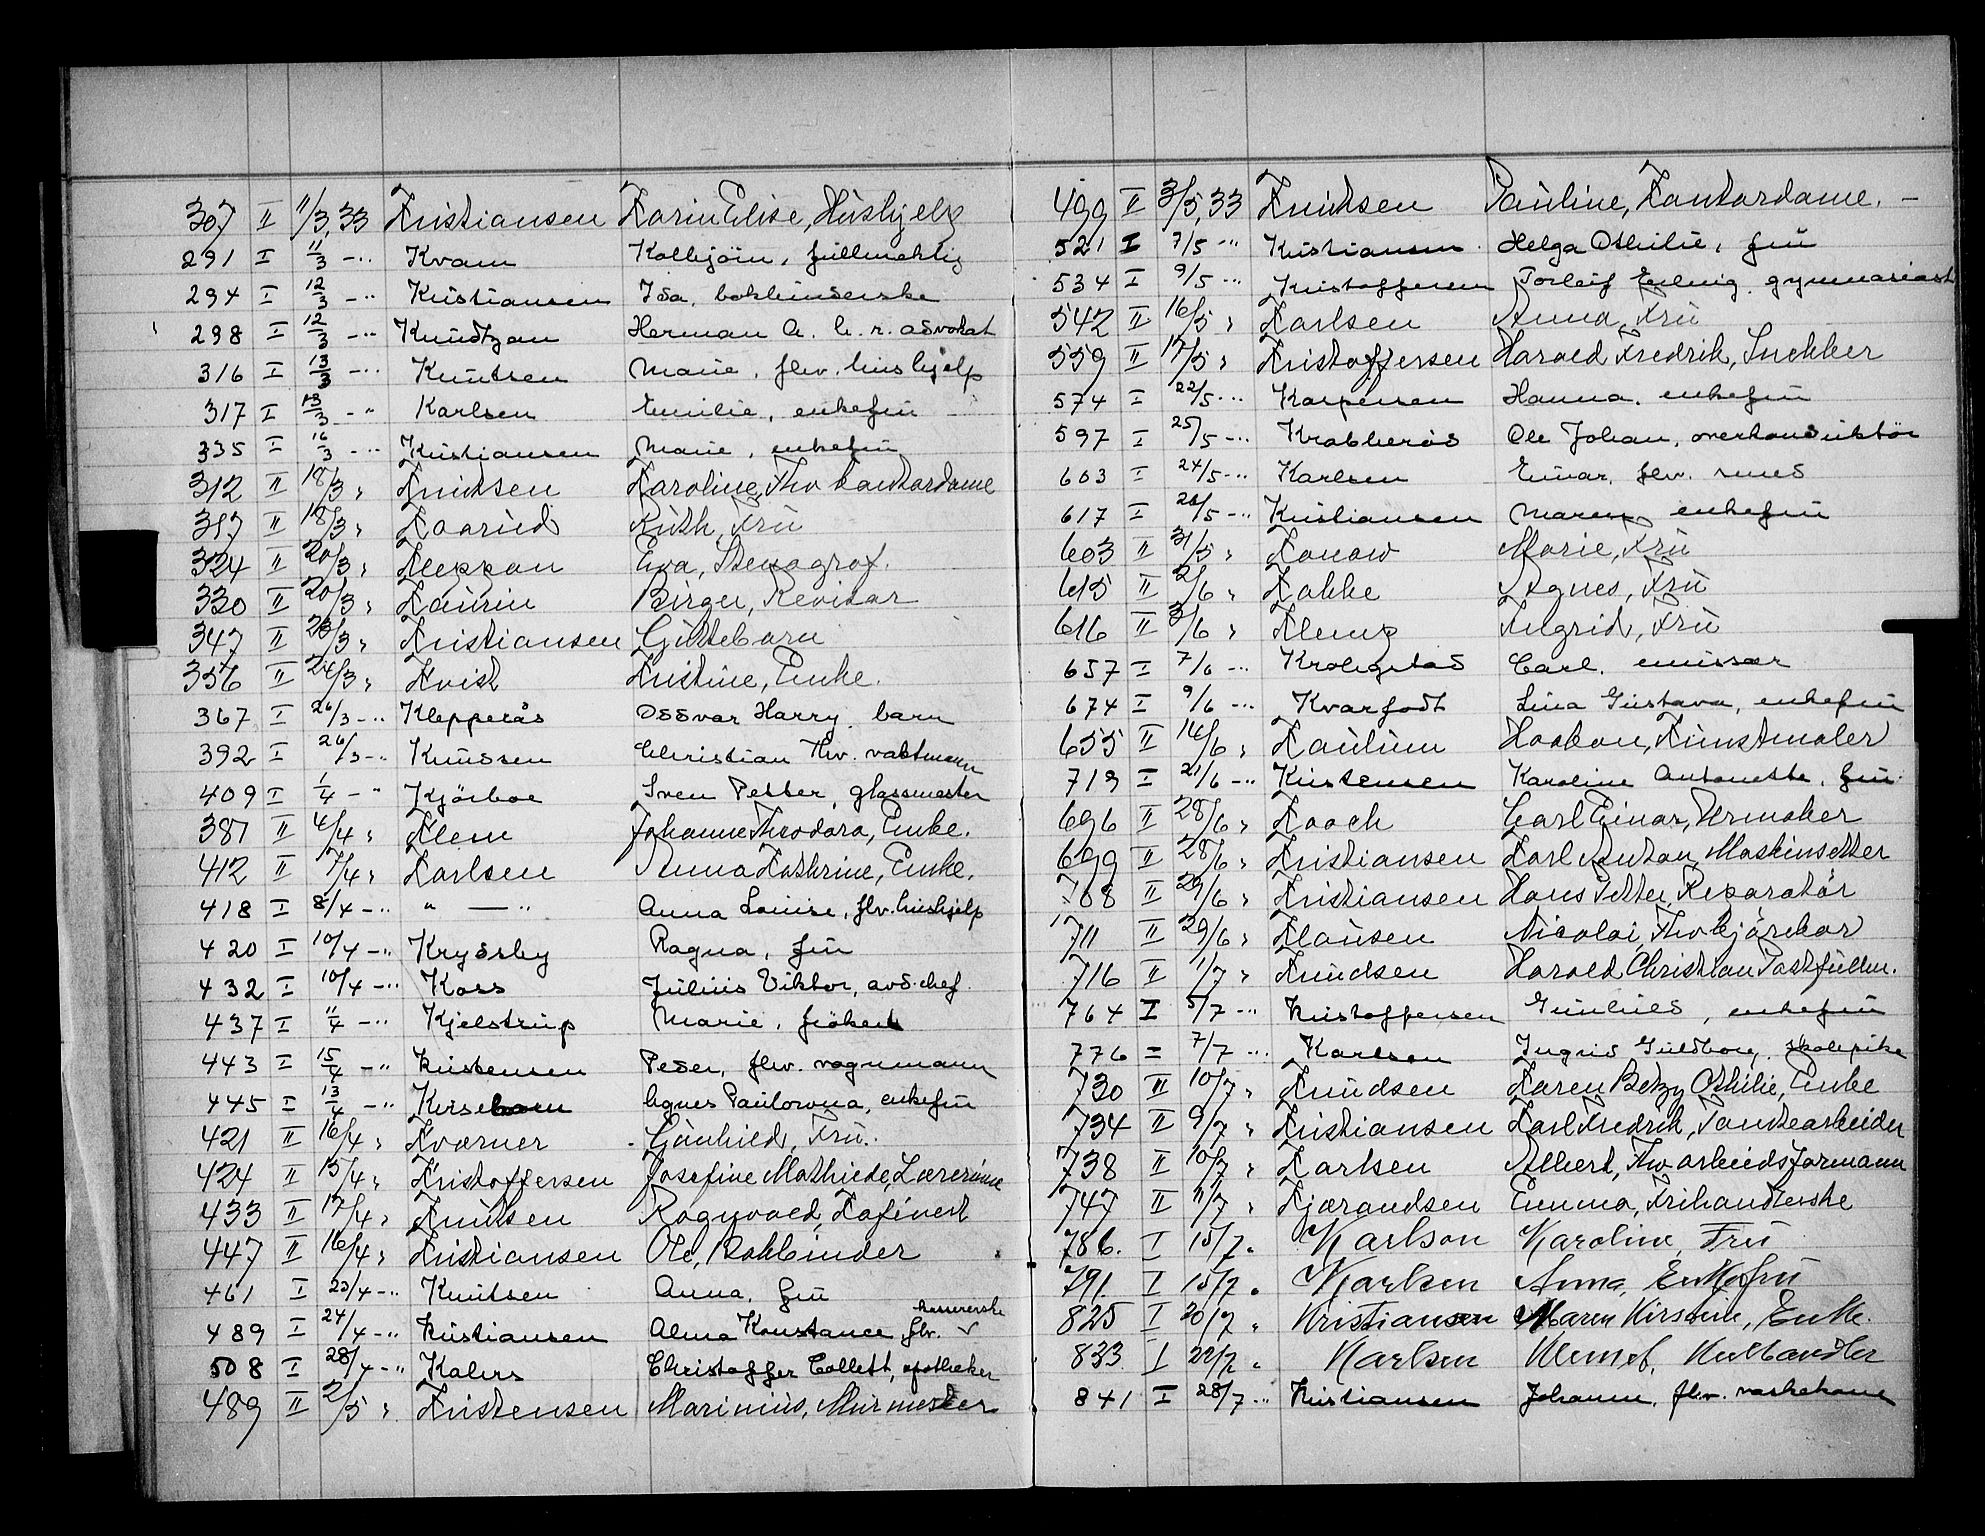 307 II 11/3,33 Kristiansen Karin Elise, Hushjelp
291 I 11/3 -" Kvam Kolbjörn, fullmektig
294 I 12/3 -" Kristiansen Ida, bokbinderske
298 I 12/3 -" Knudtzon Herman A. h.r. advokat
316 I 13/3 -" Knutsen Marie, flw. hushjelp
317 I 13/3 -" Karlsen Emilie, enkefru
335 I 16/3 -" Kristiansen Marie, enkefru
312 II 18/3 " Knudsen Karoline, Fhv kontordame
317 II 18/3 " Kaarud Ruth, Fru
324 II 20/3 " Kleppan Eva, Stenograf.
330 II 20/3 " Kaurin Birger, Revisor
347 II 23/3 " Kristiansen Guttebarn
356 II 24/3 " Kvist Kristine, Enke.
367 I 26/3 -" Klepperås Oddvar Harry, barn
392 I 26/3 -" Knudsen Christian Thv. vaktmann
409 I 1/4 -" Kjörboe Sven Petter, glassmester
387 II 4/4 " Klem Johanne Theodora, Enke.
412 II 7/4 " Karlsen Anna Kathrine, Enke.
418 I 8/4 -" " — " Anna Louise, flv. hushjelp
420 I 10/4 -" Krydsby Ragna, fru
432 I 10/4 -" Koss Julius Viktor, avd.chef
437 I 11/4 -" Kjelstrup Marie, fröken
443 I 15/4 -" Kristensen Peder, flv. vognmann
445 I 13/4 -" Agnes Paulowna, enkefru
421 II 16/4 " Kværner Gunhild, Fru.
424 II 15/4 " Kristoffersen Josefine Mathilde, Lærerinne
433 II 17/4 " Knudsen Ragnvald, Kafévert
447 II 16/4 " Kristiansen Ole, Bokbinder
461 I 23/4 -" Knutsen Anna, fru
489 I 24/4 -" Kristiansen Alma Konstance flv. kassererske
508 I 28/4 -" Kahrs Christoffer Collett, apotheker
489 II 2/5 " Kristensen Marinius, Murmester
499 II 3/5,33 Knudsen Pauline, Kontordame. -
521 I 7/5 -" Kristiansen Helga Othilie, fru
534 I 9/5 -" Kristoffersen Torleif Erling, gymnasiast
542 II 16/5 " Karlsen Anna, Fru
559 II 17/5 " Kristoffersen Harald Fredrik, Snekker
574 I 22/5 -" Kaspersen Hanna, enkefru
597 I 25/5 -" Krabberød Ole Johan, overkonduktör
603 I 24/5 -" Karlsen Einar, flv. smed
617 I 26/5 -" Kristiansen Maren, enkefru
603 II 31/5 " Konow Marie, Fru
615 II 2/6 " Kokke Agnes, Fru
616 II 3/6 " Klemp Ingrid, Fru
657 I 7/6 -" Krokgstad Carl, emissær
674 I 9/6 -" Kvarfodt Lina Gustava, enkefru
655 II 14/6 " Kaulum Haakon, Kunstmaler
719 I 21/6 -" Kristensen Karoline Antonette, fru
696 II 28/6 " Kooch Carl Einar, Urmaker
699 II 28/6 " Kristiansen Karl Anton, Maskinsetter
708 II 29/6 " Kristiansen Hans Petter, Reparatör
711 II 29/6 " Klausen Nicolai, Fhv kjörekar
716 II 1/7 " Knudsen Harald Christian Postfullm.
764 I 5/7 -" Kristoffersen Gunhild, enkefru
776 I 7/7 -" Karlsen Ingrid Guldborg, skolepike
730 II 10/7 " Knudsen Karen Betzy Othilie, Enke
734 II 9/7 " Kristiansen Karl Fredrik, Tomtearbeider
738 II 10/7 " Karlsen Albert, Fhv arbeidsformann
747 II 11/7 " Kjærandsen Emma, Frihandlerske
786. I 15/7 " Karlson Karoline, Fru
791. I 15/7 " Karlsen Anna, Enkefru
825 I 20/7 " Kristiansen Maren Kirstine, Enke.
833 I 22/7 " Karlsen
841 I 28/7 -" Kristiansen Johanne, flv. vaskekone